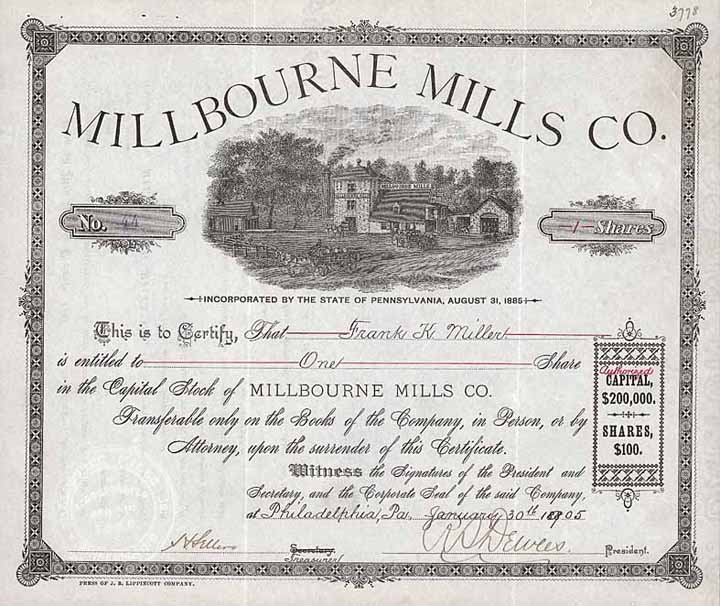 3778
MILLBOURNE MILLS CO.
MILLBOURNE MILLS
No. 44
-1- Shares
INCORPORATED BY THE STATE OF PENNSYLVANIA, AUGUST 31, 1885
This is to Certify, That Frank K. Miller
is entitled to One Share
in the Capital Stock of MILLBOURNE MILLS CO.
Transferable only on the Books of the Company, in Person, or by
Attorney, upon the surrender of this Certificate.
Authorized
CAPITAL,
$200,000.
SHARES,
$100.
Witness the Signatures of the President and
Secretary, and the Corporate Seal of the said Company,
at Philadelphia, Pa. January 30th 1905
Secretary. President.
Treasurer
PRESS OF J. B. LIPPINCOTT COMPANY.